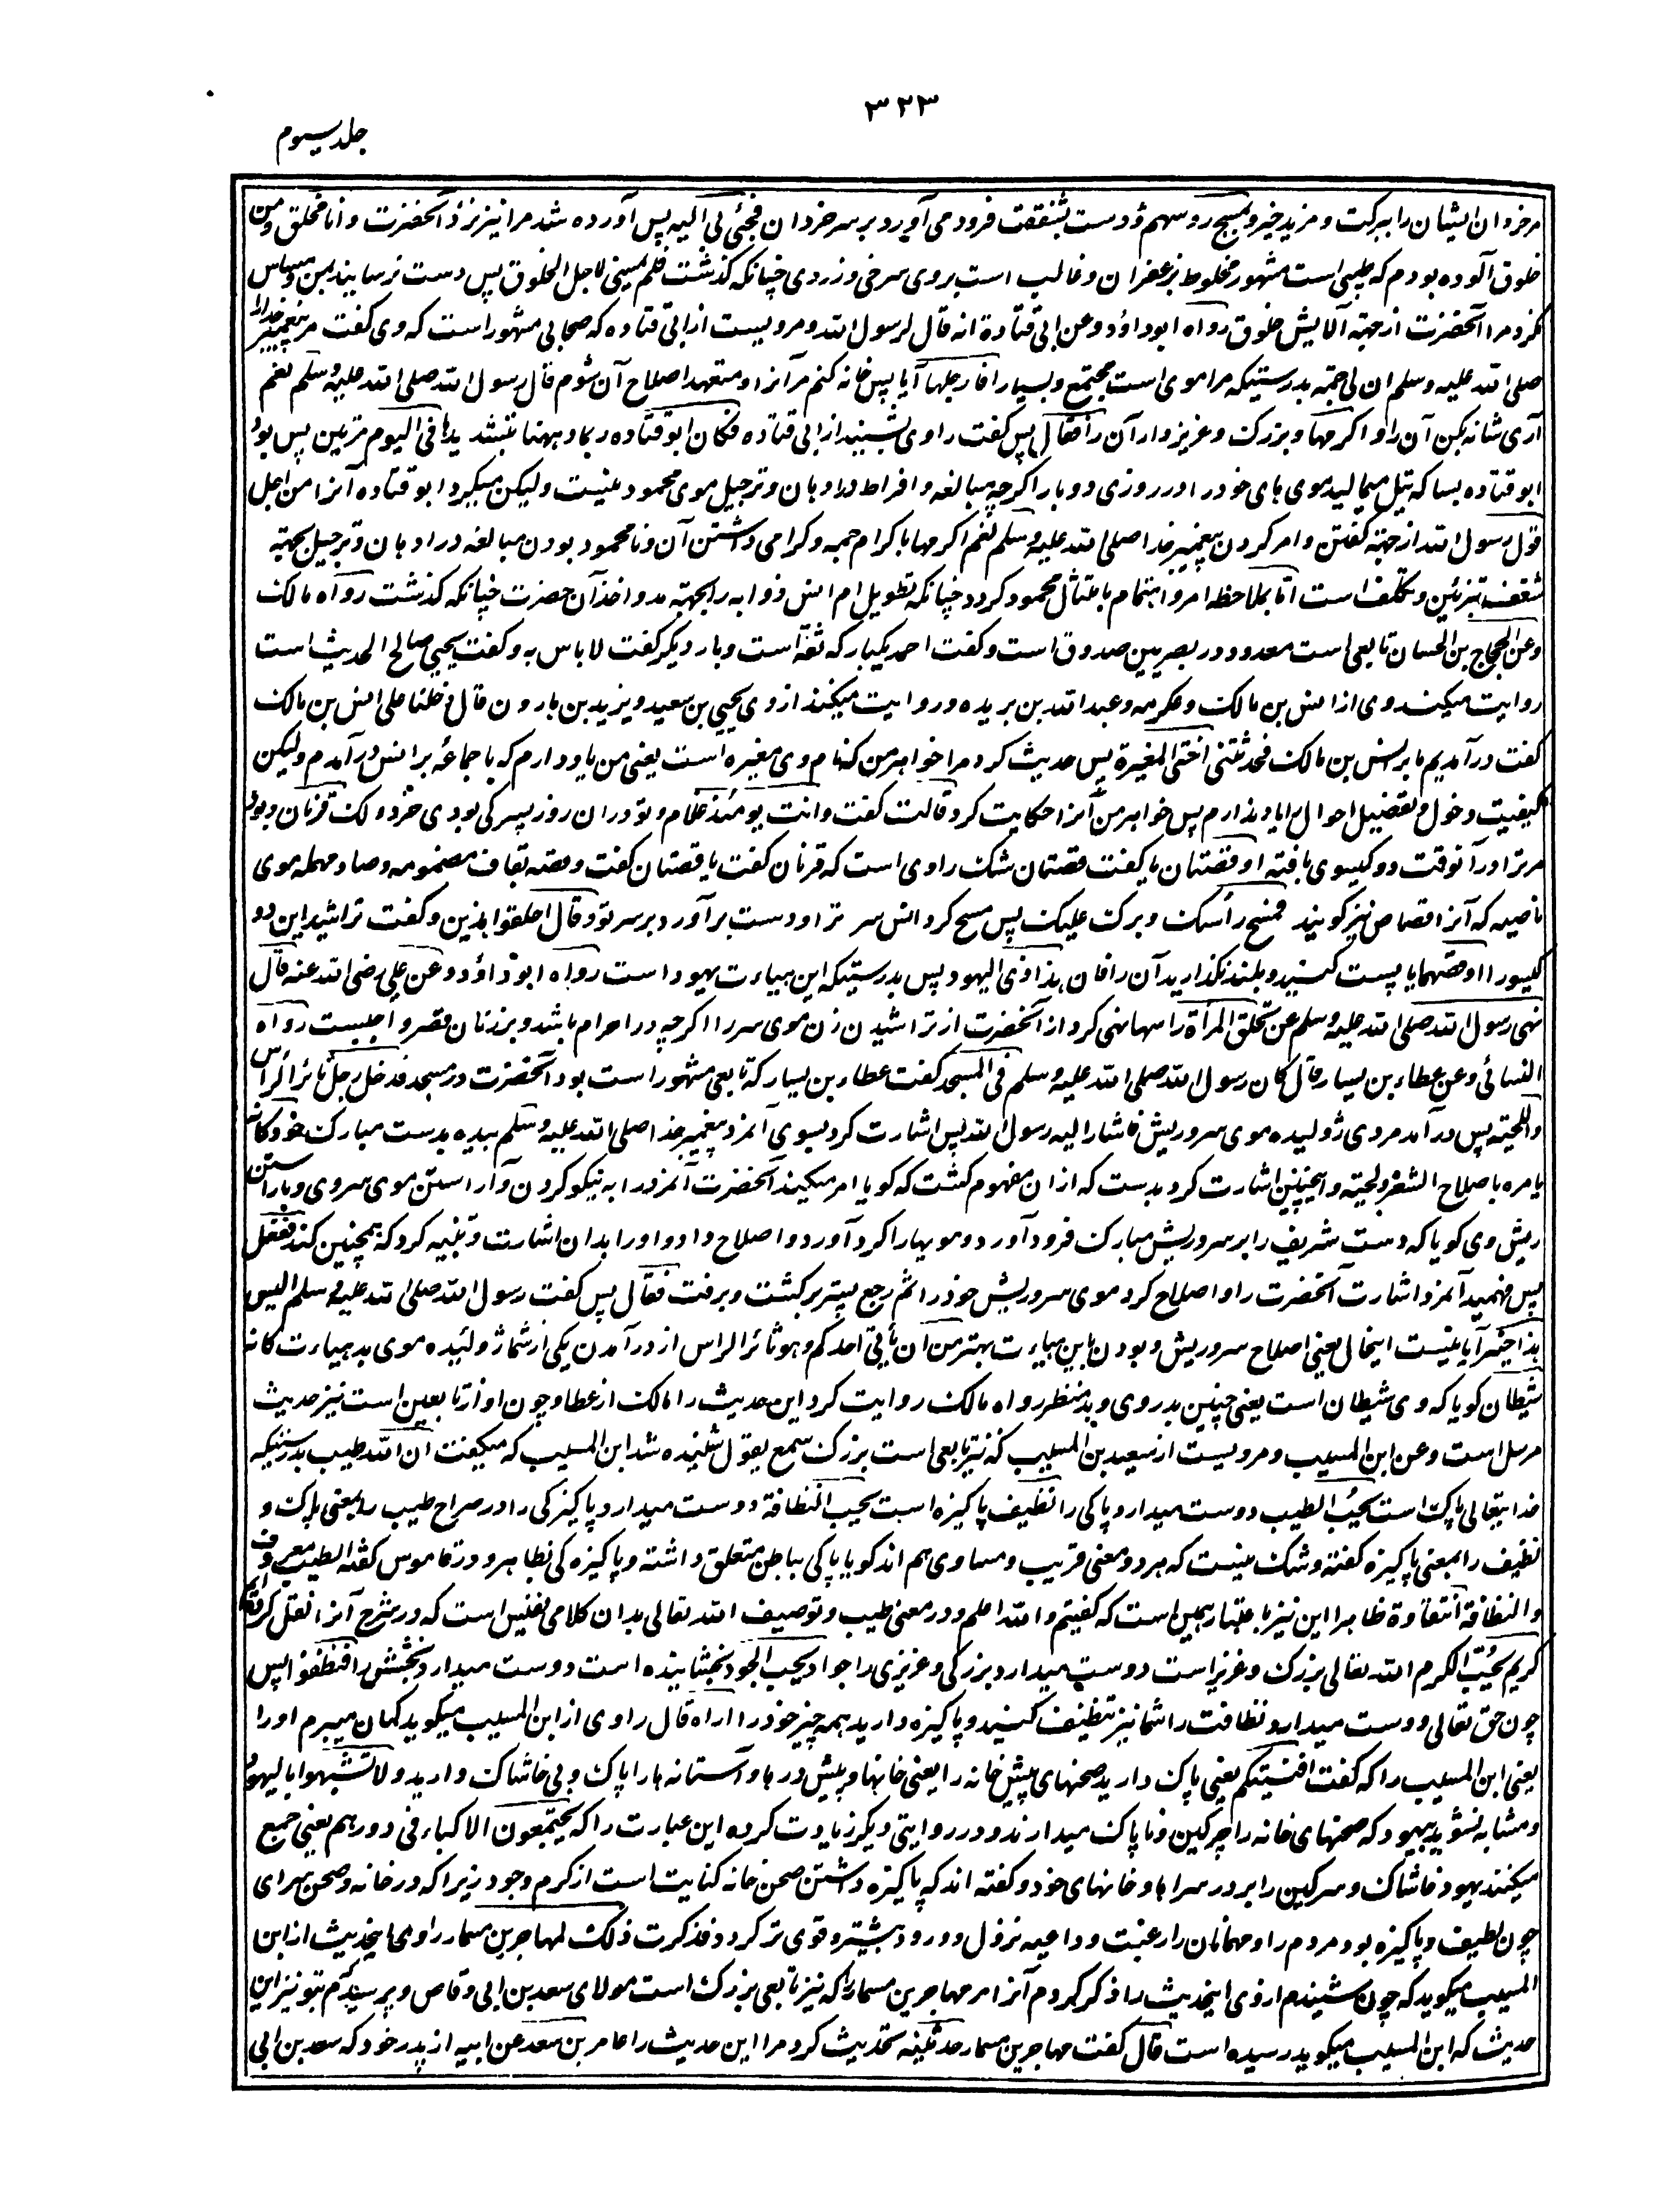 ۳۲۳
جلد سیوم
مرخردان ایشان را ببرکت و مزید خیر و بمسح روسهم و دست بشفقت فرود می آورد بر سر خردان فجیٔ بی الیه پس آورده شد مرا نیز نزد آنحضرت و انا مخلق و من
خلوق آلوده بودم که طیبی است مشهور مخلوط بزعفران و غالب است بروی سرخی و زردی چنانکه گذشت فلم یمسنی لاجل الخلوق پس دست نرسانیدند بمن و مساس
نکرد مرا آنحضرت از جهة آلایش خلوق رواه ابوداؤد و عن ابی قتادة انه قال لرسول الله و مرویست از ابی قتاده که صحابی مشهور است که وی گفت مر پیغمبر خدا را
صلی الله علیه و سلم ان لی جمة بدرستیکه مرا موی است مجتمع و بسیار افارجلها آیا پس شانه کنم مر آنرا و متعهد اصلاح آن شوم قال رسول الله صلی الله علیه و سلم نعم
آری شانه بکن آن را و اکرمها و بزرگ و عزیز دار آن را قال پس گفت راوی بشنید از ابی قتاده فکان ابو قتاده ربما دهنها بتشدید ها فی الیوم مرتین پس بود
ابو قتاده بسا که تیل میمالید موی های خود را در روزی دو بار اگرچه مبالغه و افراط در ادهان و ترجیل موی محمود نیست ولیکن میکرد ابو قتاده آنرا من اجل
قول رسول الله از جهة گفتن و امر کردن پیغمبر خدا صلی الله علیه و سلم نعم اکرمها باکرام جمه و گرامی داشتن آن و نامحمود بودن مبالغه در ادهان و ترجیل بجهة
شغف بتزئین و تکلف است اما بملاحظه امر و اهتمام بامتثال محمود گردد چنانکه تطویل ام انس ذوابه را بجهة مد و اخذ آن حضرت چنانکه گذشت رواه مالک
و عن الحجاج بن الحسان تابعی است معدود در بصریین صدوق است و گفت احمد یکبار که ثقه است و بار دیگر گفت لا باس به و گفت یحیی صالح الحدیث است
روایت میکند وی از انس بن مالک و عکرمه و عبد الله بن بریده و روایت میکنند از وی یحیی بن سعید و یزید بن هارون قال دخلنا علی انس بن مالک
گفت درآمدیم ما بر انس بن مالک فحدثتنی اختی المغیرة پس حدیث کرد مرا خواهر من که نام وی مغیره است یعنی من یاد دارم که با جماعۀ بر انس درآمدم ولیکن
کیفیت دخول و تفصیل احوال را یاد ندارم پس خواهر من آنرا حکایت کرد قالت گفت و انت یومئذ غلام و تو در ان روز پسرکی بودی خرد و لک قرنان و بود
مر ترا در آنوقت دو گیسوی بافته او قصتان یا گفت قصتان شک راوی است که قرنان گفت یا قصتان گفت و قصه بقاف مضمومه و صاد مهمله موی
ناصیه که آنرا قصاص نیز گویند فمسح رأسک و برک علیک پس مسح کرد انس سر ترا و دست برآورد بر سر تو و قال احلقوا هذین و گفت تراشید این دو
گیسو را او قصوهما یا پست کنید و بلند نگذارید آن را فان هذا زی الیهود پس بدرستیکه این هیاءت یهود است رواه ابوداؤد و عن علی رضی الله عنه قال
نهی رسول الله صلی الله علیه و سلم عن تحلق المرأة رأسها نهی کرد از آنحضرت از تراشیدن زن موی سر را اگرچه در احرام باشد و بر زنان قصر واجبست رواه
النسائی و عن عطاء بن یسار قال کان رسول الله صلی الله علیه و سلم فی المسجد گفت عطاء بن یسار که تابعی مشهور است بود آنحضرت در مسجد فدخل رجل ثائر الراس
و اللحیته پس درآمد مردی ژولیده موی سر و ریش فاشار الیه رسول الله پس اشارت کرد بسوی آنمرد پیغمبر خدا صلی الله علیه و سلم بیده بدست مبارک خود کانه
یامره باصلاح الشعر و لحیته و اینچنین اشارت کرد بدست که از ان مفهوم گشت که گویا امر میکند آنحضرت آنمرد را به نیکو کردن و آراستن موی سر وی و باراستن
ریش وی گویا که دست شریف را بر سر و ریش مبارک فرود آورد و مویها را گرد آورد و اصلاح داد و او را بدان اشارت و تنبیه کرد که همچنین کند ففعل
پس فهمید آنمرد اشارت آنحضرت را و اصلاح کرد موی سر و ریش خود را ثم رجع پستر برگشت و برفت فقال پس گفت رسول الله صلی الله علیه و سلم الیس
هذا خیرا آیا نیست اینحال یعنی اصلاح سر و ریش و بودن باین هیاءت بهتر من ان یأتی احدکم و هو ثائر الراس از درآمدن یکی از شما ژولیده موی بد هیاءت کانه
شیطان گویا که وی شیطان است یعنی چنین بد روی و بد منظر رواه مالک روایت کرد این حدیث را مالک از عطا و چون او از تابعین است نیز حدیث
مرسل است و عن ابن المسیب و مرویست از سعید بن المسیب که نیز تابعی است بزرگ سمع یقول شنیده شد ابن المسیب که میگفت ان الله طیب بدرستیکه
خدایتعالی پاک است یحب الطیب دوست میدارد پاکی را نظیف پاکیزه است یحب النظافة دوست میدارد پاکیزگی را در صراح طیب را بمعنی پاک و
نظیف را بمعنی پاکیزه گفته و شک نیست که هر دو معنی قریب و مساوی هم اند گویا پاکی بباطن متعلق داشته و پاکیزه گی بظاهر و در قاموس گفته الطیب معروف
و النظافة النقاوة ظاهرا این نیز باعتبار همین است که گفتیم و الله اعلم و در معنی طیب و توصیف الله تعالی بدان کلامی نفیس است که در شرح آنرا نقل کرده ایم
کریم یحب الکرم الله تعالی بزرگ و عزیز است دوست میدارد بزرگی و عزیزی را جواد یحب الجود بخشاینده است دوست میدارد بخشش را فنظفوا پس
چون حق تعالی دوست میدارد نظافت را شما نیز تنظیف کنید و پاکیزه دارید همه چیز خود را اراه قال راوی از ابن المسیب میگوید گمان میبرم او را
یعنی ابن المسیب را که گفت افنیتکم یعنی پاک دارید صحنهای پیش خانه را یعنی خانها و پیش در ها و آستانه ها را پاک و بی خاشاک دارید و لا تشبهوا بالیهود
و مشابه نشوید بیهود که صحنهای خانه را چرکین و ناپاک میدارند و در روایتی دیگر زیادت کرده این عبارت را که یجتمعون الاکباء فی دورهم یعنی جمع
میکنند یهود خاشاک و سرگین را بر در سراها و خانهای خود و گفته اند که پاکیزه داشتن صحن خانه کنایت است از کرم و جود زیرا که در خانه و صحن سرای
چون لطیف و پاکیزه بود مردم را و مهمانان را رغبت و داعیه نزول و ورود بیشتر و قوی تر گردد فذکرت ذلک لمهاجر بن مسمار راوی اینحدیث از ابن
المسیب میگوید که چون شنیدم از وی اینحدیث را ذکر کردم آنرا مر مهاجر بن مسمار را که نیز تابعی بزرگ است مولای سعد بن ابی وقاص و پرسیدم بتو نیز این
حدیث که ابن المسیب میگوید رسیده است قال گفت مهاجر بن مسمار حدثنیه تحدیث کرد مرا این حدیث را عامر بن سعد عن ابیه از پدر خود که سعد بن ابی